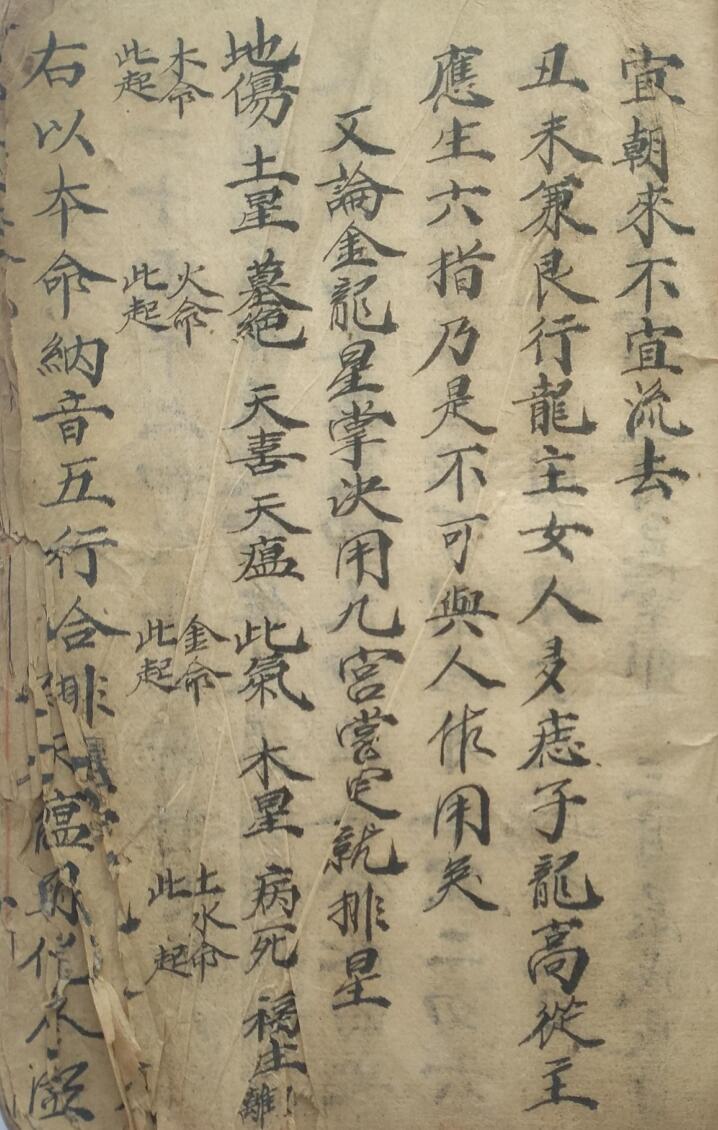 宜朝來不宜流去
丑未兼艮行龍主女人多痣子龍高從主
應生六指乃是不可與人作用矣
又論金龍星掌決用九宮掌定就排星
地傷 土星 墓絕 天喜 天瘟 此氣 木星 病死 禍庄 離
木命此起 火命此起 金命此起 土水命此起
右以本命納音五行合排 天瘟